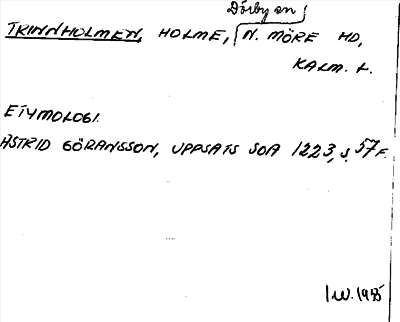 Dörby sn,
TRINNHOLMEN, HOLME, N. MÖRE HD,
KALM. L.
ETYMOLOGI.
ASTRID GÖRANSSON, UPPSATS SOA 1223, S. 57 F.
I.W. 1985